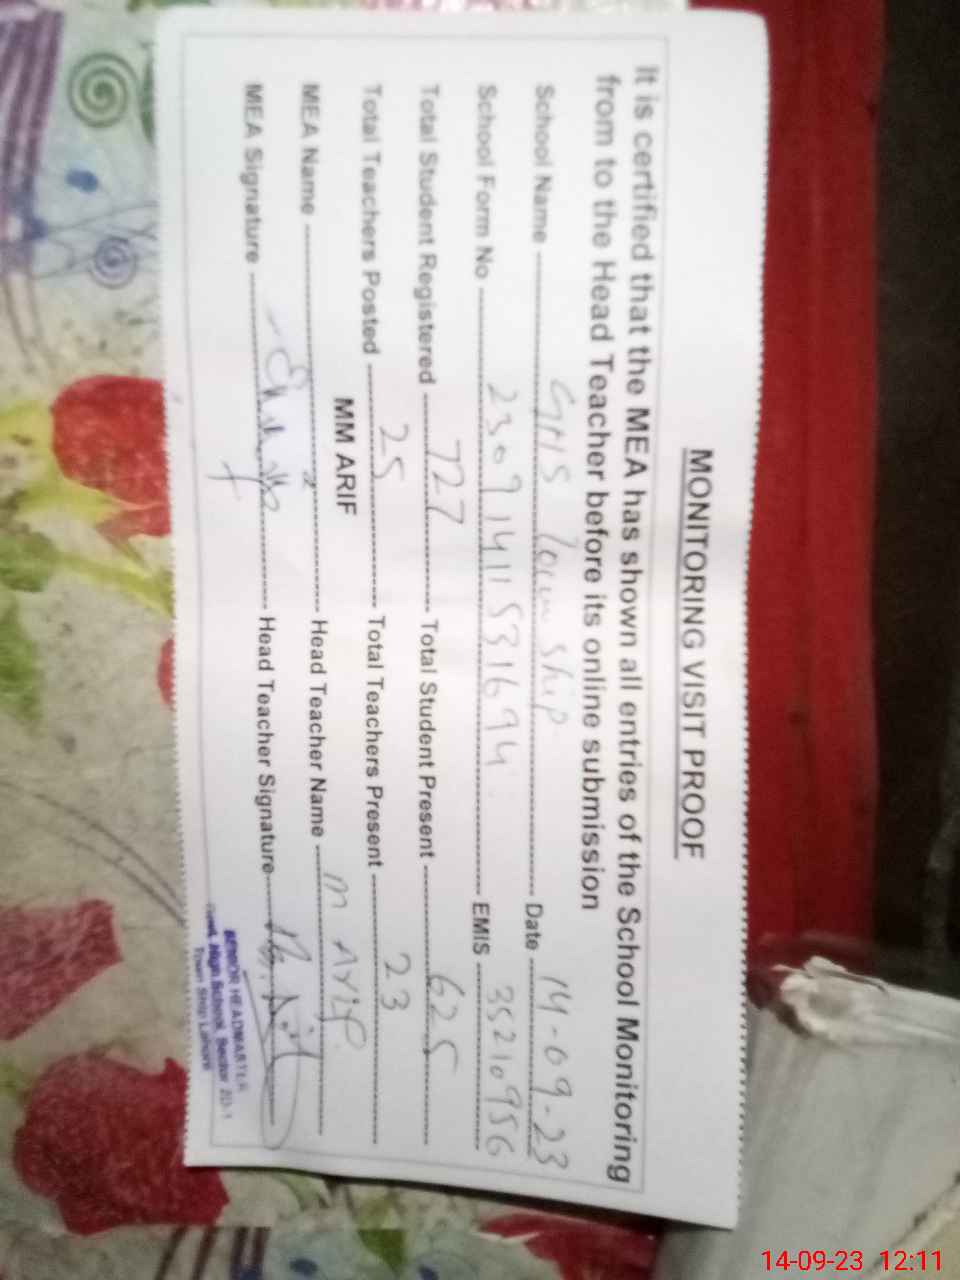 MONITORING VISIT PROOF
It is certified that the MEA has shown all entries of the School Monitoring
from to the Head Teacher before its online submission
School Name GHS Town Ship Date 14-09-23
School Form No 23091411531694 EMIS 35210956
Total Student Registered 727 Total Student Present 625
Total Teachers Posted 25 Total Teachers Present 23
MM ARIF
MEA Name Head Teacher Name M Arif
MEA Signature Head Teacher Signature
SENIOR HEADMASTER
Govt. High School, Sector
Town Ship Lahore
14-09-23 12:11